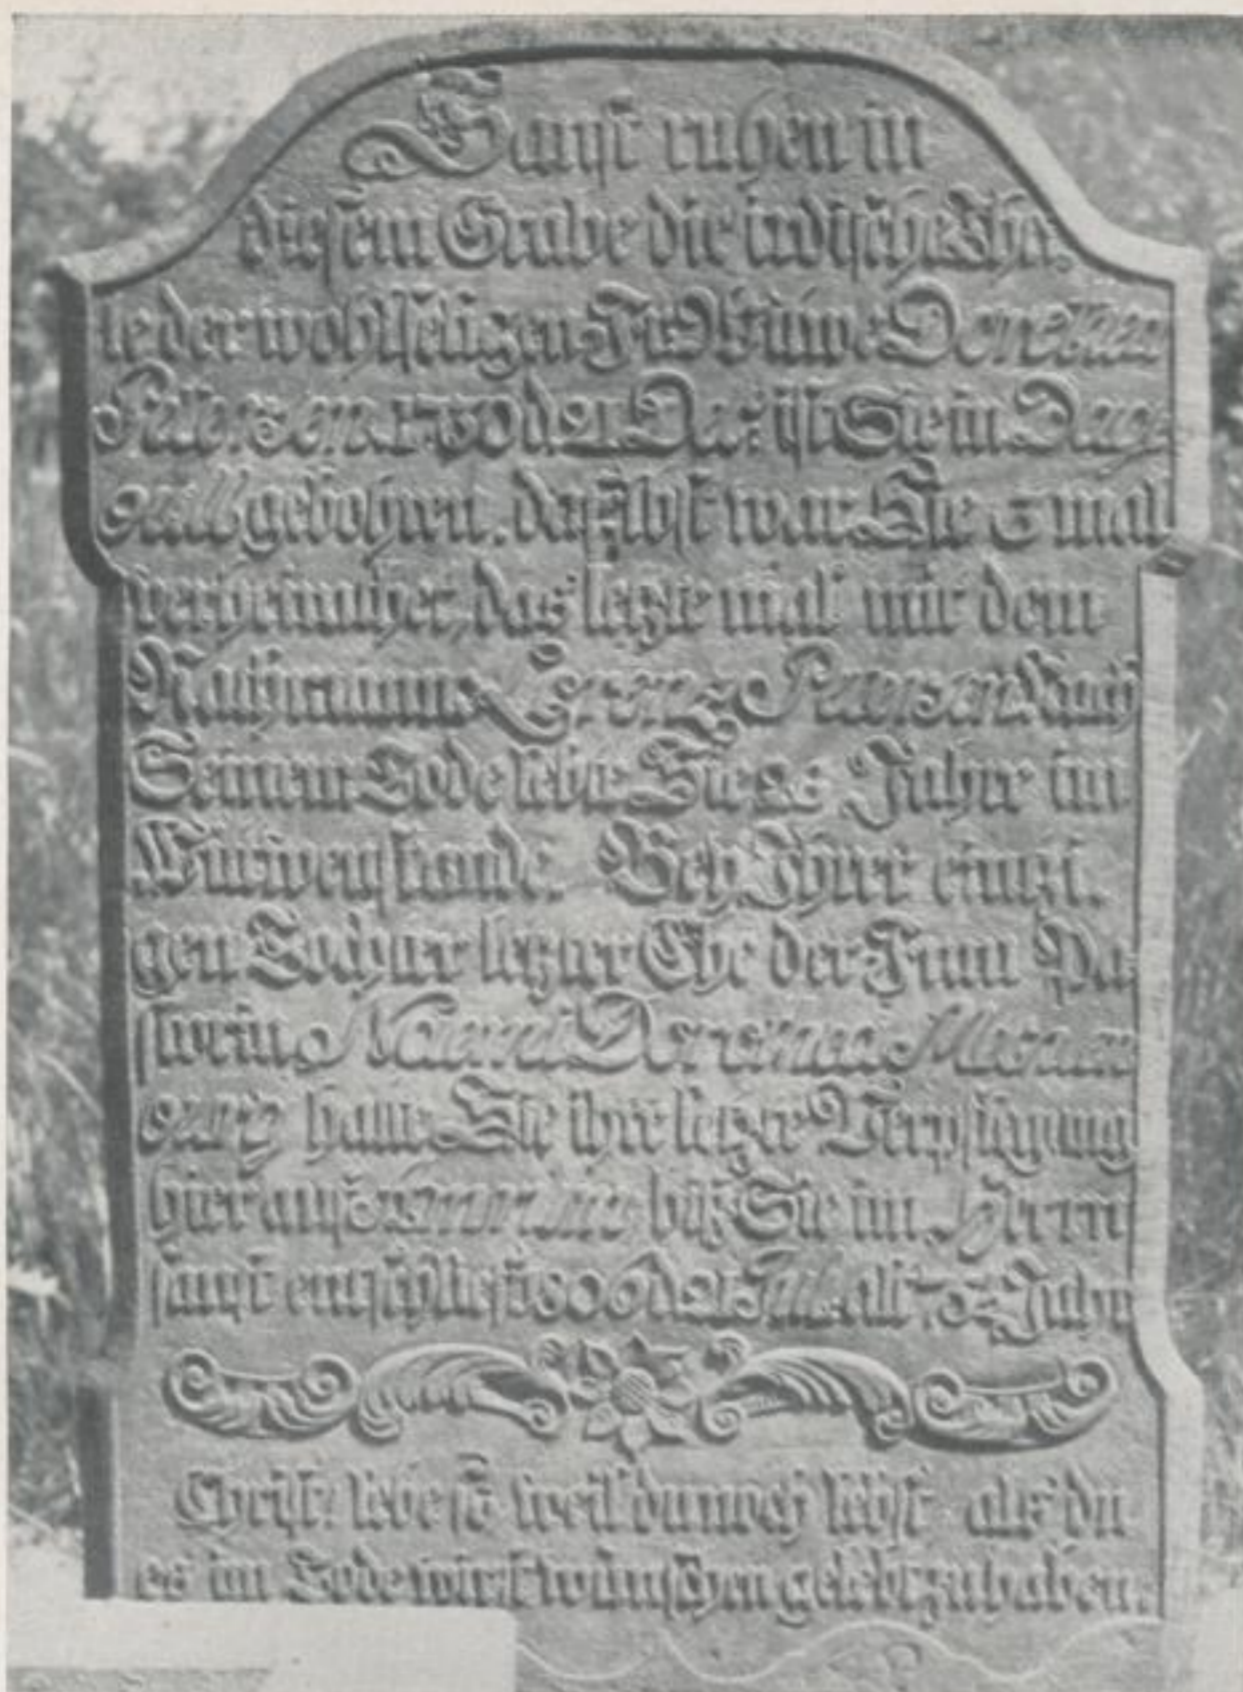 Sanft ruhen in
diesem Grabe die irdische Thei-
le der wohlseligen Fr: Wittwe: Dorothea
Petersen 1730 d 21 Dec: ist Sie in Dage-
büll gebohren. daselbst war Sie 3 mal
verheirathet, das letzte mal mit dem
Rathmann Lorenz Petersen. Nach
Seinem Tode lebte Sie 26 Jahre im
Wittwenstande. Bey Ihrer einzi-
gen Tochter letzter Ehe der Frau Pa-
storin Naemi Dorothea
hatte Sie ihre letzte Verpflegung
hier auf biß Sie im Herrn
sanft entschlief: 1806 d 25 alt 75 Jahr
Christ: lebe so weil du noch lebst als du
es im Tode wirst wünschen gelebt zu haben.